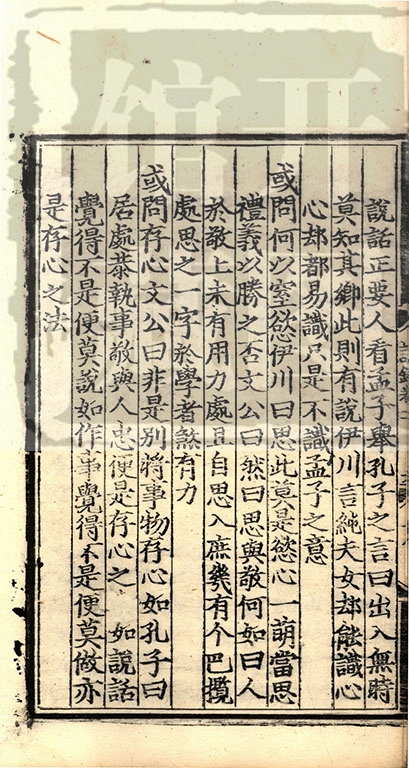 說話正要人看孟子舉孔子之言曰出入無時
莫知其鄉此則有說伊川言純夫女却能識心
心却都易識只是不識孟子之意
或問何以窒慾伊川曰思此莫是慾心一萌當思
禮義以勝之否文公曰然曰思與敬何如曰人
於敬上未有用力處且自思入庶幾有个巴攬
處思之一字於學者煞有力
或問存心文公曰非是別將事物存心如孔子曰
居處恭執事敬與人忠便是存心之 如說話
覺得不是便莫說如作事覺得不是便莫做亦
是存心之法